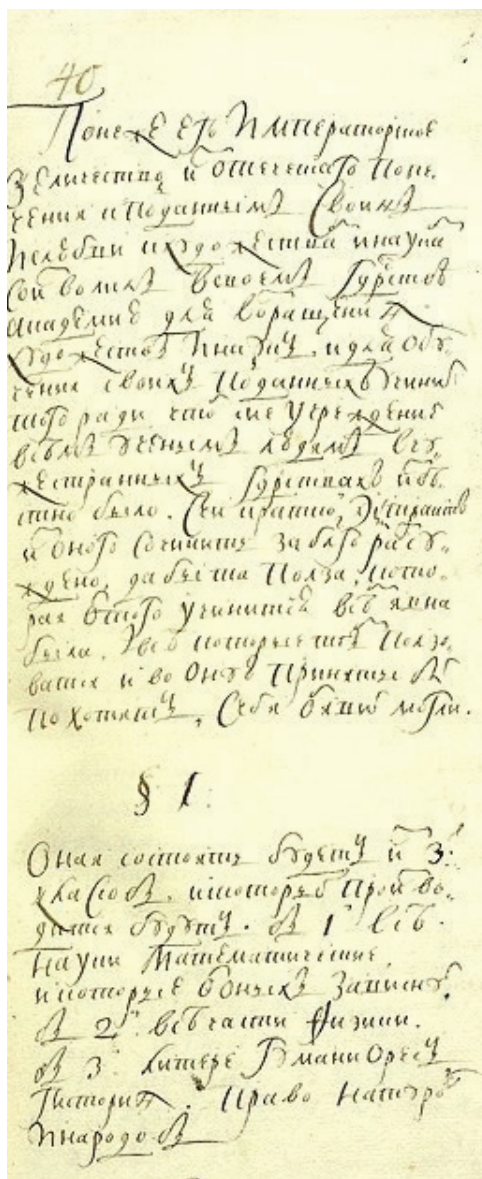 40
Понеже его Императорское
Величество и отеческаго попе
чения и подданнымъ своимъ
художества и наука
всемъ государстве
академие для возращения
художествъ и наукъ, и для обу
чения своихъ подданныхъ учинить
того ради что сие учреждение
всемъ ученымъ людемъ въ чу
жестранныхъ государствахъ изве
стно было. Сей краткой экстрактъ
и оного сочинить за благо разсу
ждено, дабы та полза, кото
рая от того учинится всемъ явна
была. И все которые тое ползо
ватися и во оную приняты быть
похотятъ, себя обявить могли.
§ 1.
Оная состоять будетъ из 3:
класовъ, в которые произво
дится будутъ. въ 1 все
науки математические
и которые от оныхъ зависятъ.
въ 2 все части физики.
въ 3 литере гуманиоресъ
гистория. право натуры
и народовъ